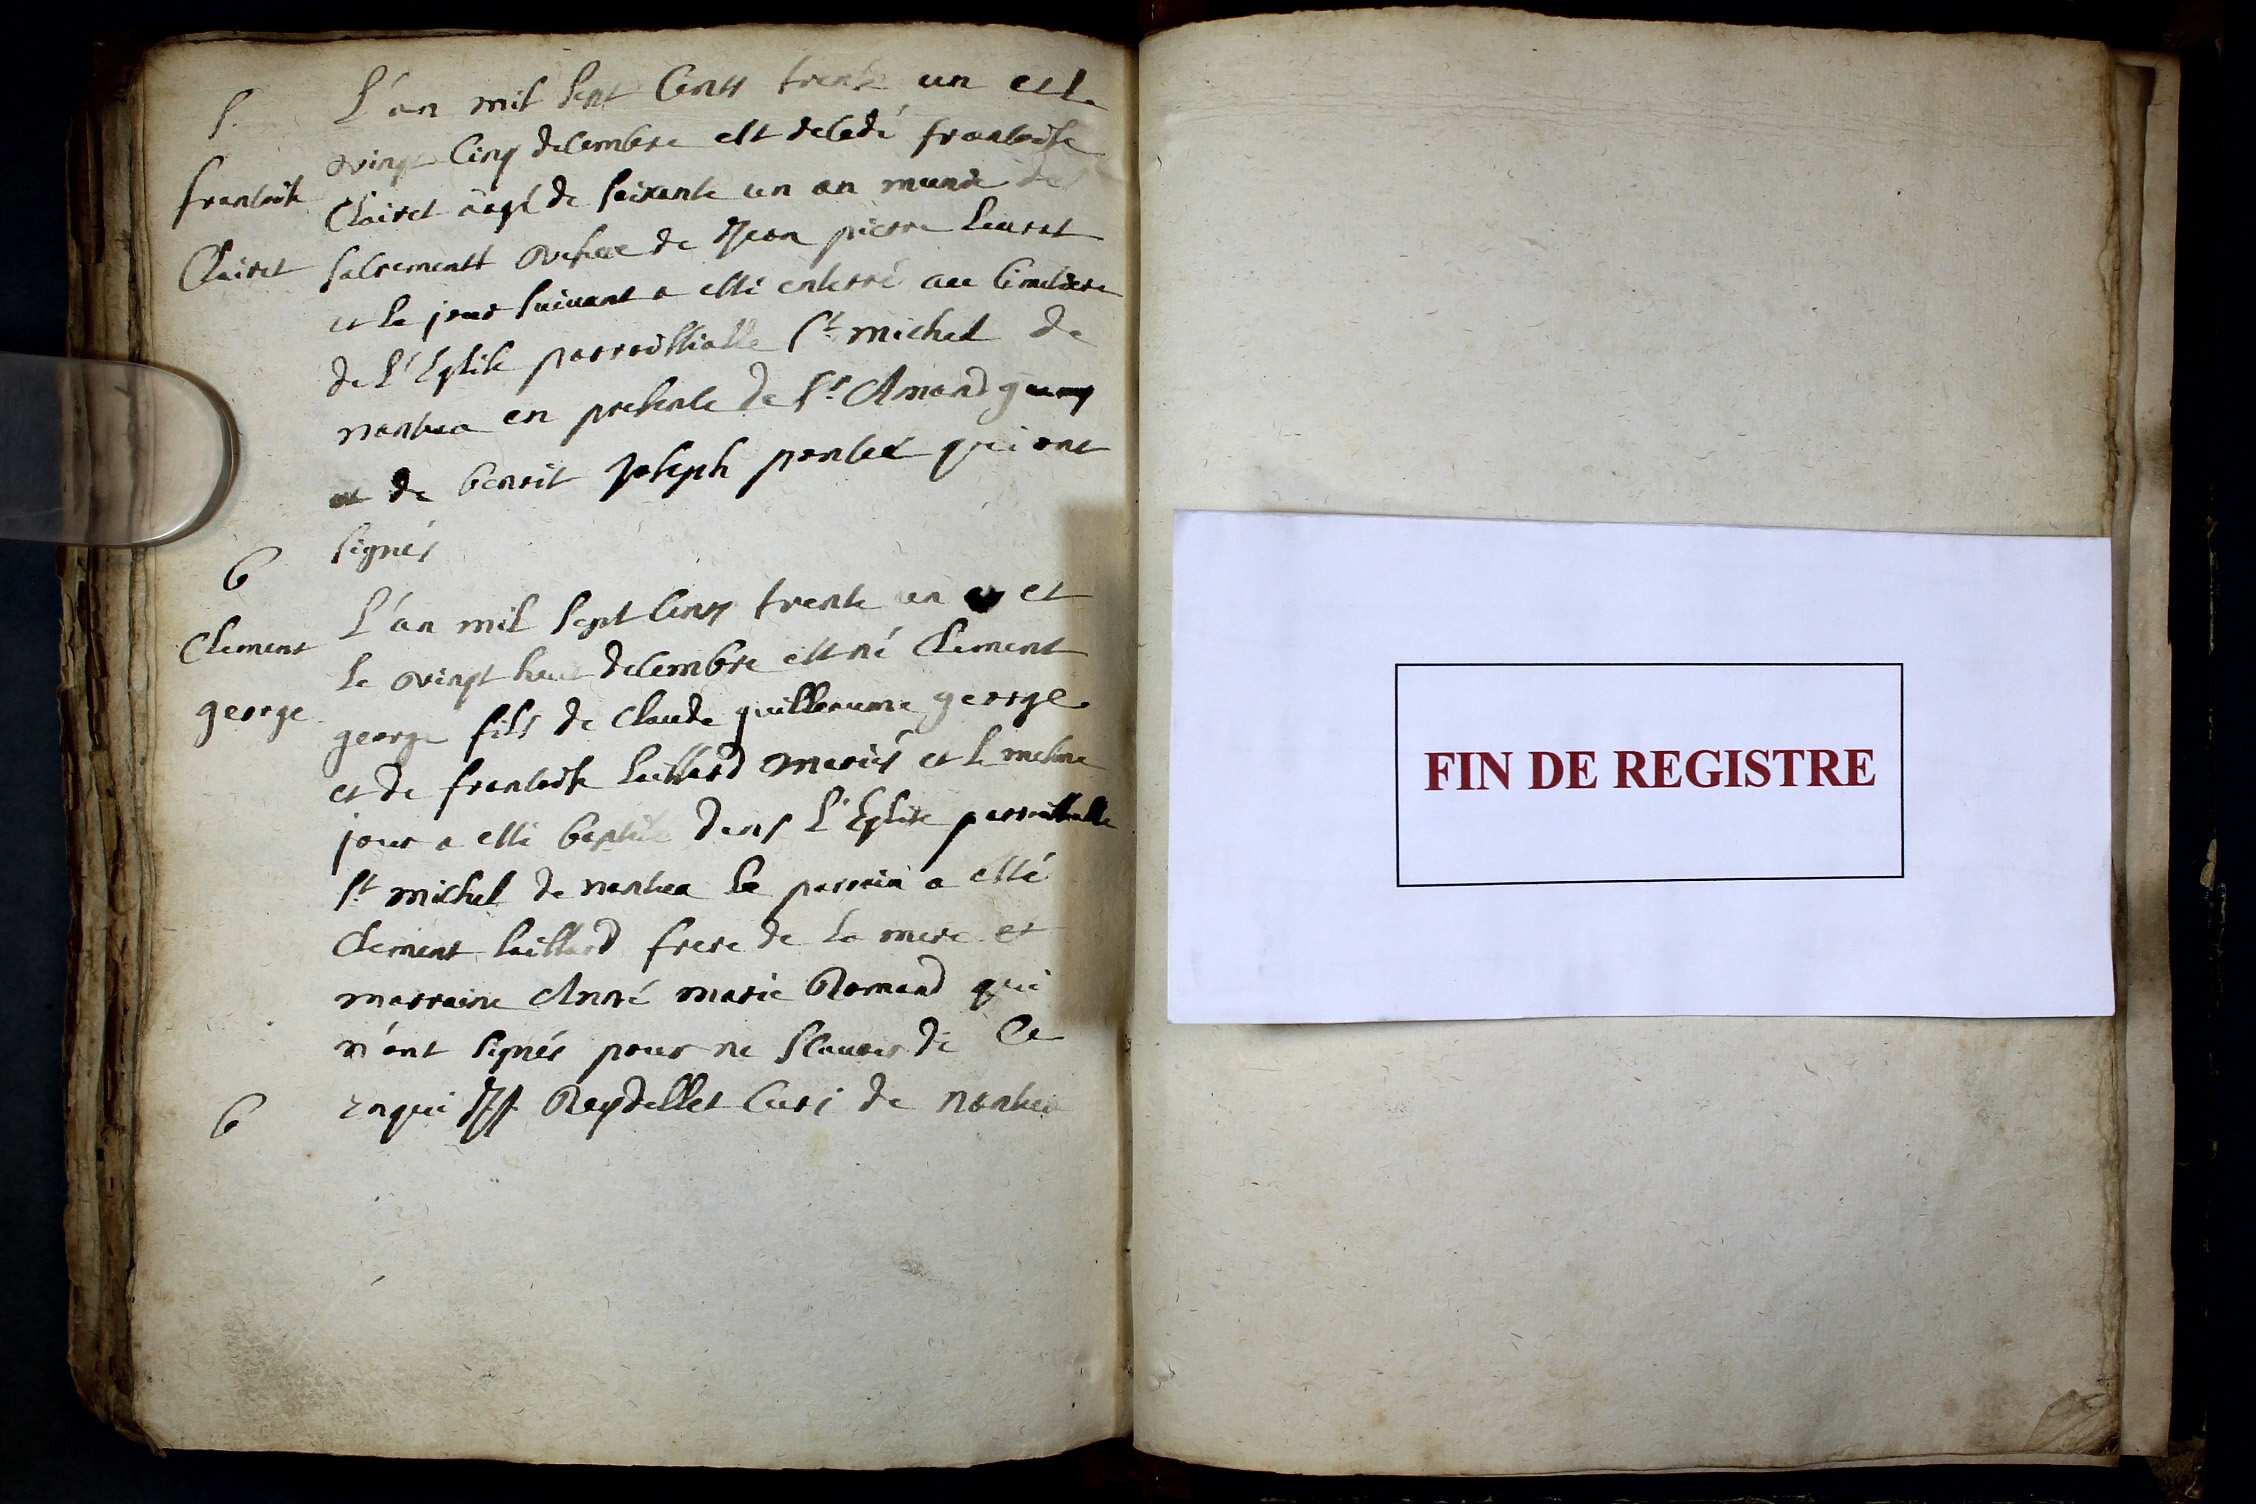 S.
francoise
Clairet
L'an mil sept cents trente un et le
vingt cinq decembre est decedé francoise
Clairet âagé de soixante un an munie des
sacrements vefue de Jean pierre
et le jour suivant a esté enterré au Cimetiere
de L'Eglise parroissialle St michel de
nantua en presence de Sr Amand
et de benoit Joseph poncet qui ont
signés
b
Clement
george
L'an mil sept cents trente un et
le vingt huit decembre est né Clement
george fils de claude guillaume george
et de francoise mariés et le mesme
jour a esté baptisé dans L'Eglise parroissialle
St michel de nantua le parrain a esté
Clement frere de la mere et
marraine André marie Romand qui
n'ont signés pour ne scauoir de Ce
enqui JJ Reydellet Curé de nantua
b
FIN DE REGISTRE